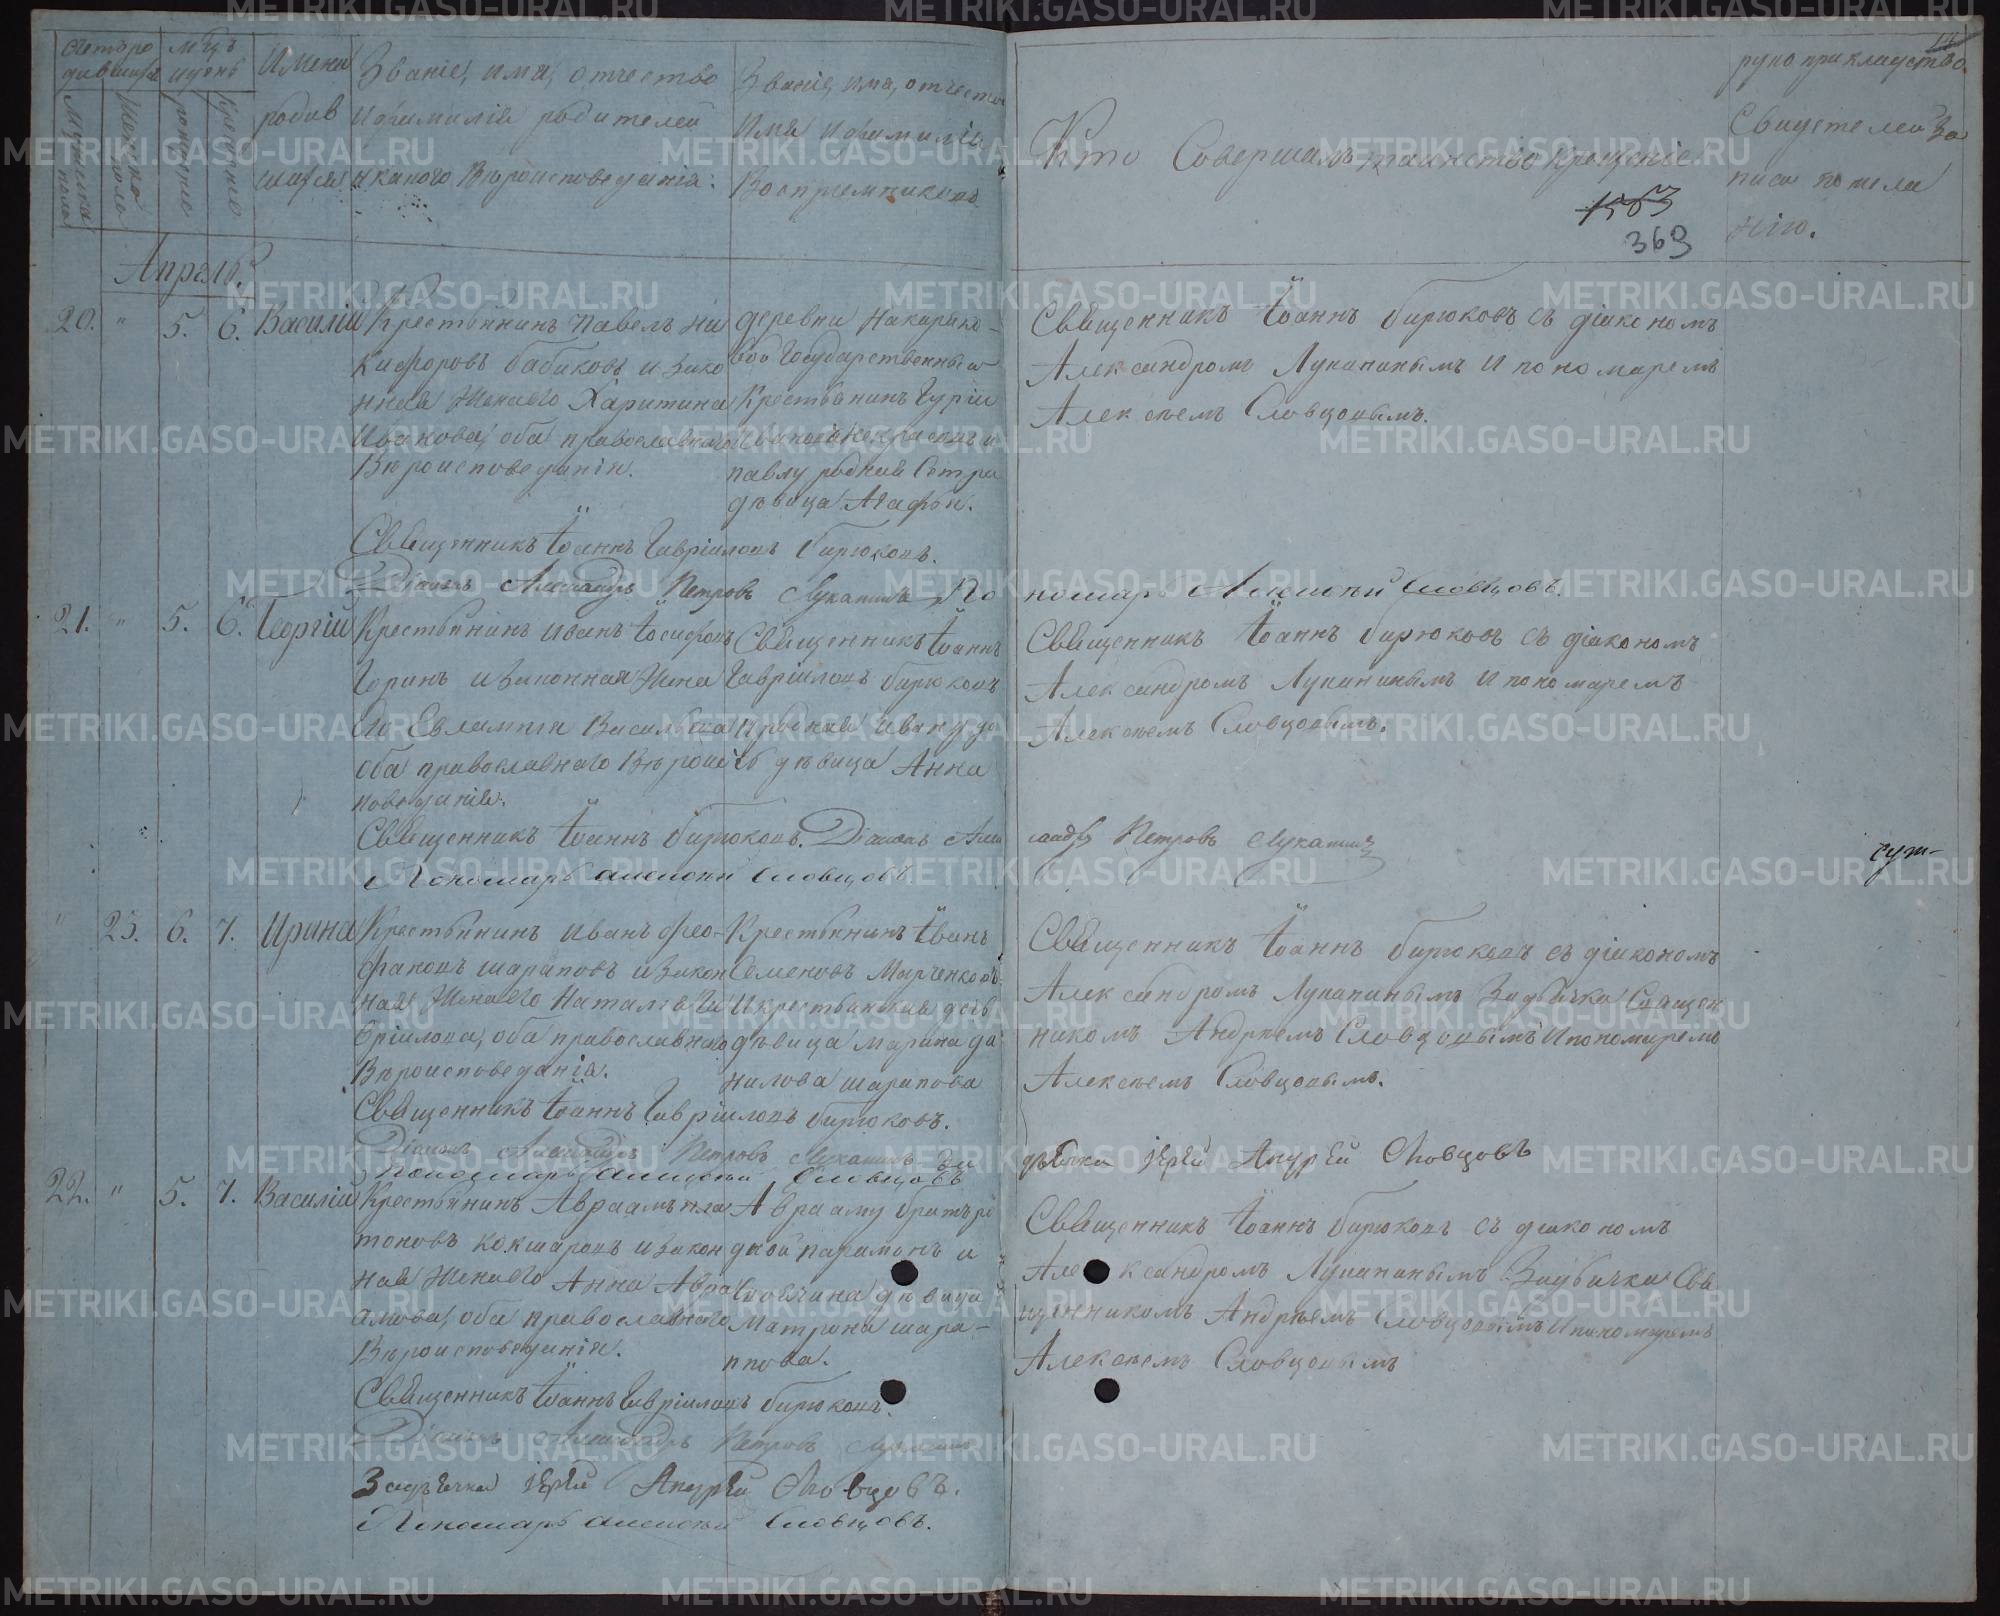 счетъ ро
дившихся
Мужеска
пола
Женска
полъ
мцъ
и день
рожденіе
крещеніе
Имена
родив
шихся
Званіе, имя, отчество
и фамилія родителей
и какого Вѣроисповеданія.
Званіе, имя, отчество
имя и фамилія
Воспріемниковъ
Кто Совершалъ таинство Крещенія
1503
369
рукоприкладство
Свидетелей За
писи по жела
нію.
Апрель.
20. " 5. 6. Василій
Крестьянинъ Павелъ Ни
кифоровъ бабиковъ и Зако
нная Жена его Харитина
Иванова, оба православнаго
Вѣроисповеданія.
деревни Макарихо-
вой Государственный
Крестьянинъ Гурій
павлу родная Сетра
дѣвица Агафья.
Священникъ Іоаннъ бирюковъ съ діакономъ
Александромъ Лукининымъ и пономаремъ
Алексѣемъ Словцовымъ.
Священникъ Іоаннъ Гавріиловъ бирюковъ.
Діаконъ Александръ Петровъ Лукининъ По
номарь Алексѣй Словцовъ.
21. " 5. 6. Георгій
Крестьянинъ иванъ Іосифовъ
Горинъ и Законная Жена
его Евлампія Васильева
оба православнаго Вѣроис
поведанія.
Священникъ Іоаннъ
Гавріиловъ бирюковъ
и родная ивану до
чь дѣвица Анна
Священникъ Іоаннъ бирюковъ съ діакономъ
Александромъ Лукининымъ и пономаремъ
Алексѣемъ Словцовымъ.
Священникъ Іоаннъ бирюковъ. Діаконъ Алек
сандръ Петровъ Лукининъ
Пономарь алексѣй Словцовъ.
" 23. 6. 7. Ирина
Крестьянинъ иванъ фео-
фановъ шараповъ и Закон
ная Жена его Наталья Га
вріилова, оба православнаго
Вѣроисповеданія.
Крестьянинъ Іванъ
Семеновъ Марченковъ
и крестьянская дочь
дѣвица Марина да
нилова шарапова
Священникъ Іоаннъ бирюковъ съ діакономъ
Александромъ Лукининымъ За дьячка Священ
никомъ Андрѣемъ Словцовымъ и пономаремъ
Алексѣемъ Словцовымъ.
Священникъ Іоаннъ Гавріиловъ бирюковъ.
Діаконъ Александръ Петровъ Лукининъ За
дьячка іерей Андрей Словцовъ
Пономарь Алексѣй Словцовъ
22. " 5. 7. Василій
Крестьянинъ Авраамъ пла
тоновъ Кокшаровъ и Закон
ная Жена его Анна Авра
амова, оба православнаго
Вѣроисповеданія.
Аврааму братъ ро
дной парамонъ и
дѣвица
Матрона шара-
пова.
Священникъ Іоаннъ бирюковъ съ діакономъ
Александромъ Лукининымъ За дьячка Свя
щенникомъ Андрѣемъ Словцовымъ и пономаремъ
Алексѣемъ Словцовымъ
Священникъ Іоаннъ Гавріиловъ бирюковъ.
Діаконъ Александръ Петровъ Лукининъ
За дьячка іерей Андрей Словцовъ.
Пономарь алексѣй Словцовъ.
METRIKI.GASO-URAL.RU